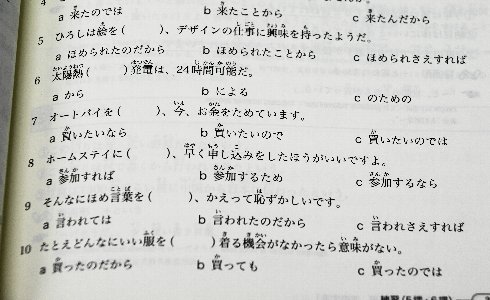 a 来たのでは b 来たことから c 来たんだから
5 ひろしは絵を( )、デザインの仕事に興味を持ったようだ。
a ほめられたのだから b ほめられたことから c ほめられさえすれば
6 太陽熱( )発電は、24時間可能だ。
a から b による c のための
7 オートバイを( )、今、お金をためています。
a 買いたいなら b 買いたいので c 買いたいのでは
8 ホームステイに( )、早く申し込みをしたほうがいいですよ。
a 参加すれば b 参加するため c 参加するなら
9 そんなにほめ言葉を( )、かえって恥ずかしいです。
a 言われては b 言われたのだから c 言われさえすれば
10 たとえどんなにいい服を( )着る機会がなかったら意味がない。
a 買ったのだから b 買っても c 買ったのでは